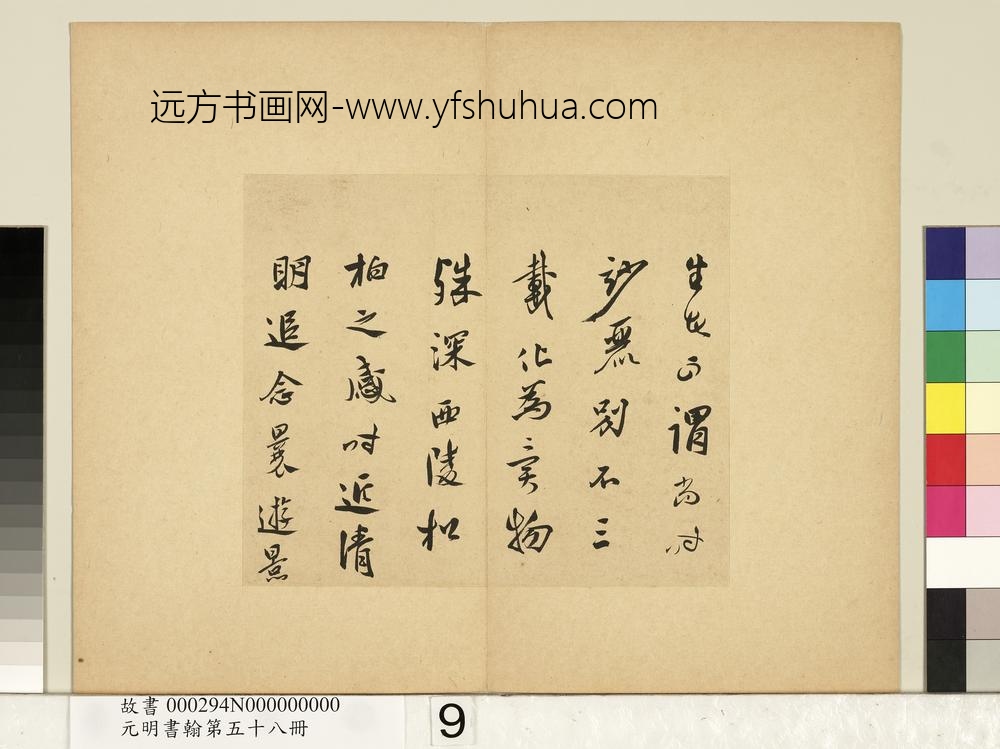 远方书画网-www.yfshuhua.com
生 謂尚時
妙麗别不三
載化為異物
殊深西陵松
柏之感時近清
明追念曩遊景
故書 000294N000000000
元明書翰第五十八冊
9